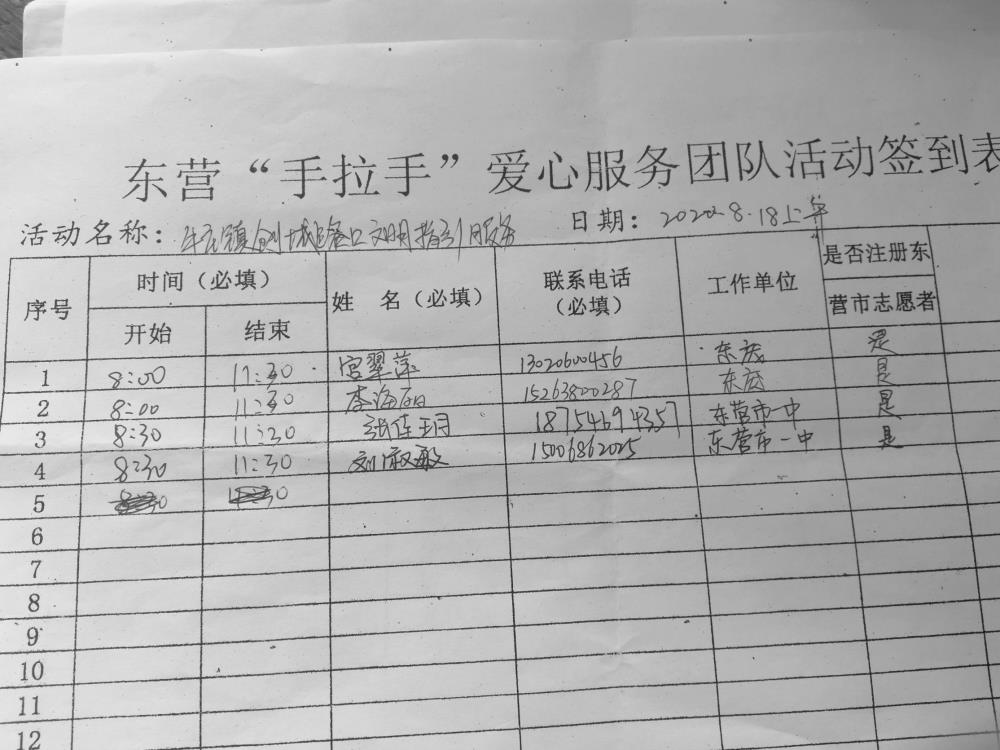 东营“手拉手”爱心服务团队活动签到表
活动名称：牛庄镇创城路口文明指引服务 日期：2020.8.18上午
序号 时间（必填） 姓 名（必填） 联系电话（必填） 工作单位 是否注册东营市志愿者
开始 结束
1 8:00 11:30 宫翠萍 13020600456 东 是
2 8:00 11:30 李海 15263800287 东 是
3 8:30 11:30 张佳玥 18754694357 东营市一中 是
4 8:30 11:30 刘淑敏 15006862025 东营市一中 是
5
6
7
8
9
10
11
12